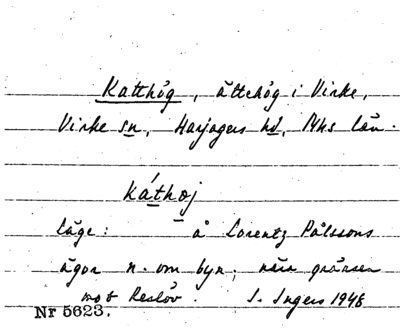 Katthög, ättehög i Virke,
Virke sn, Harjagers hd, Mms län.
káthøj
läge: å Lorentz Pålssons
ägor n. om byn, nära gränsen
mot Reslöv. I. Ingers 1948
Nr 5623.